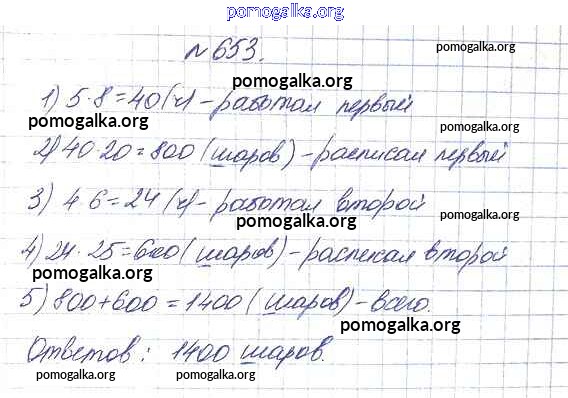 pomogalka.org
№ 653.
pomogalka.org
pomogalka.org
1) 5·8=40(ч) - работал первый
pomogalka.org
pomogalka.org
2) 40·20=800 (шаров) - расписал первый
pomogalka.org
3) 4·6=24 (ч) - работал второй
pomogalka.org
pomogalka.org
4) 24·25=600 (шаров) - расписал второй
pomogalka.org
pomogalka.org
5) 800+600=1400 (шаров) - всего.
pomogalka.org
Ответов: 1400 шаров.
pomogalka.org
pomogalka.org